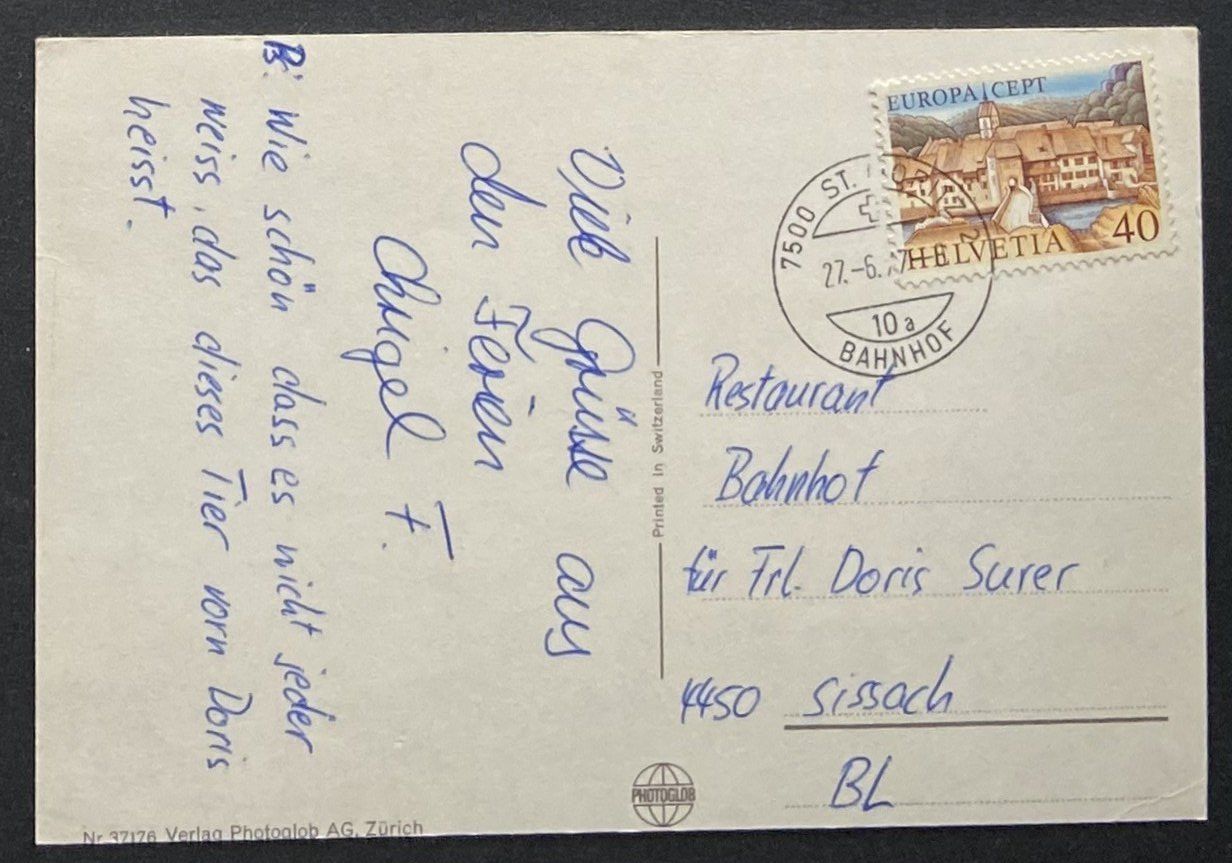 Viele Grüsse aus
den Ferien
Chrigel F.
PS: Wie schön dass es nicht jeder
weiss, das dieses Tier vorn Doris
heisst.
Nr 37176 Verlag Photoglob AG, Zürich
Printed in Switzerland
PHOTOGLOB
EUROPA CEPT
HELVETIA 40
7500 ST.
27.-6.
10a
BAHNHOF
Restaurant
Bahnhof
für Frl. Doris Surer
4450 Sissach
BL